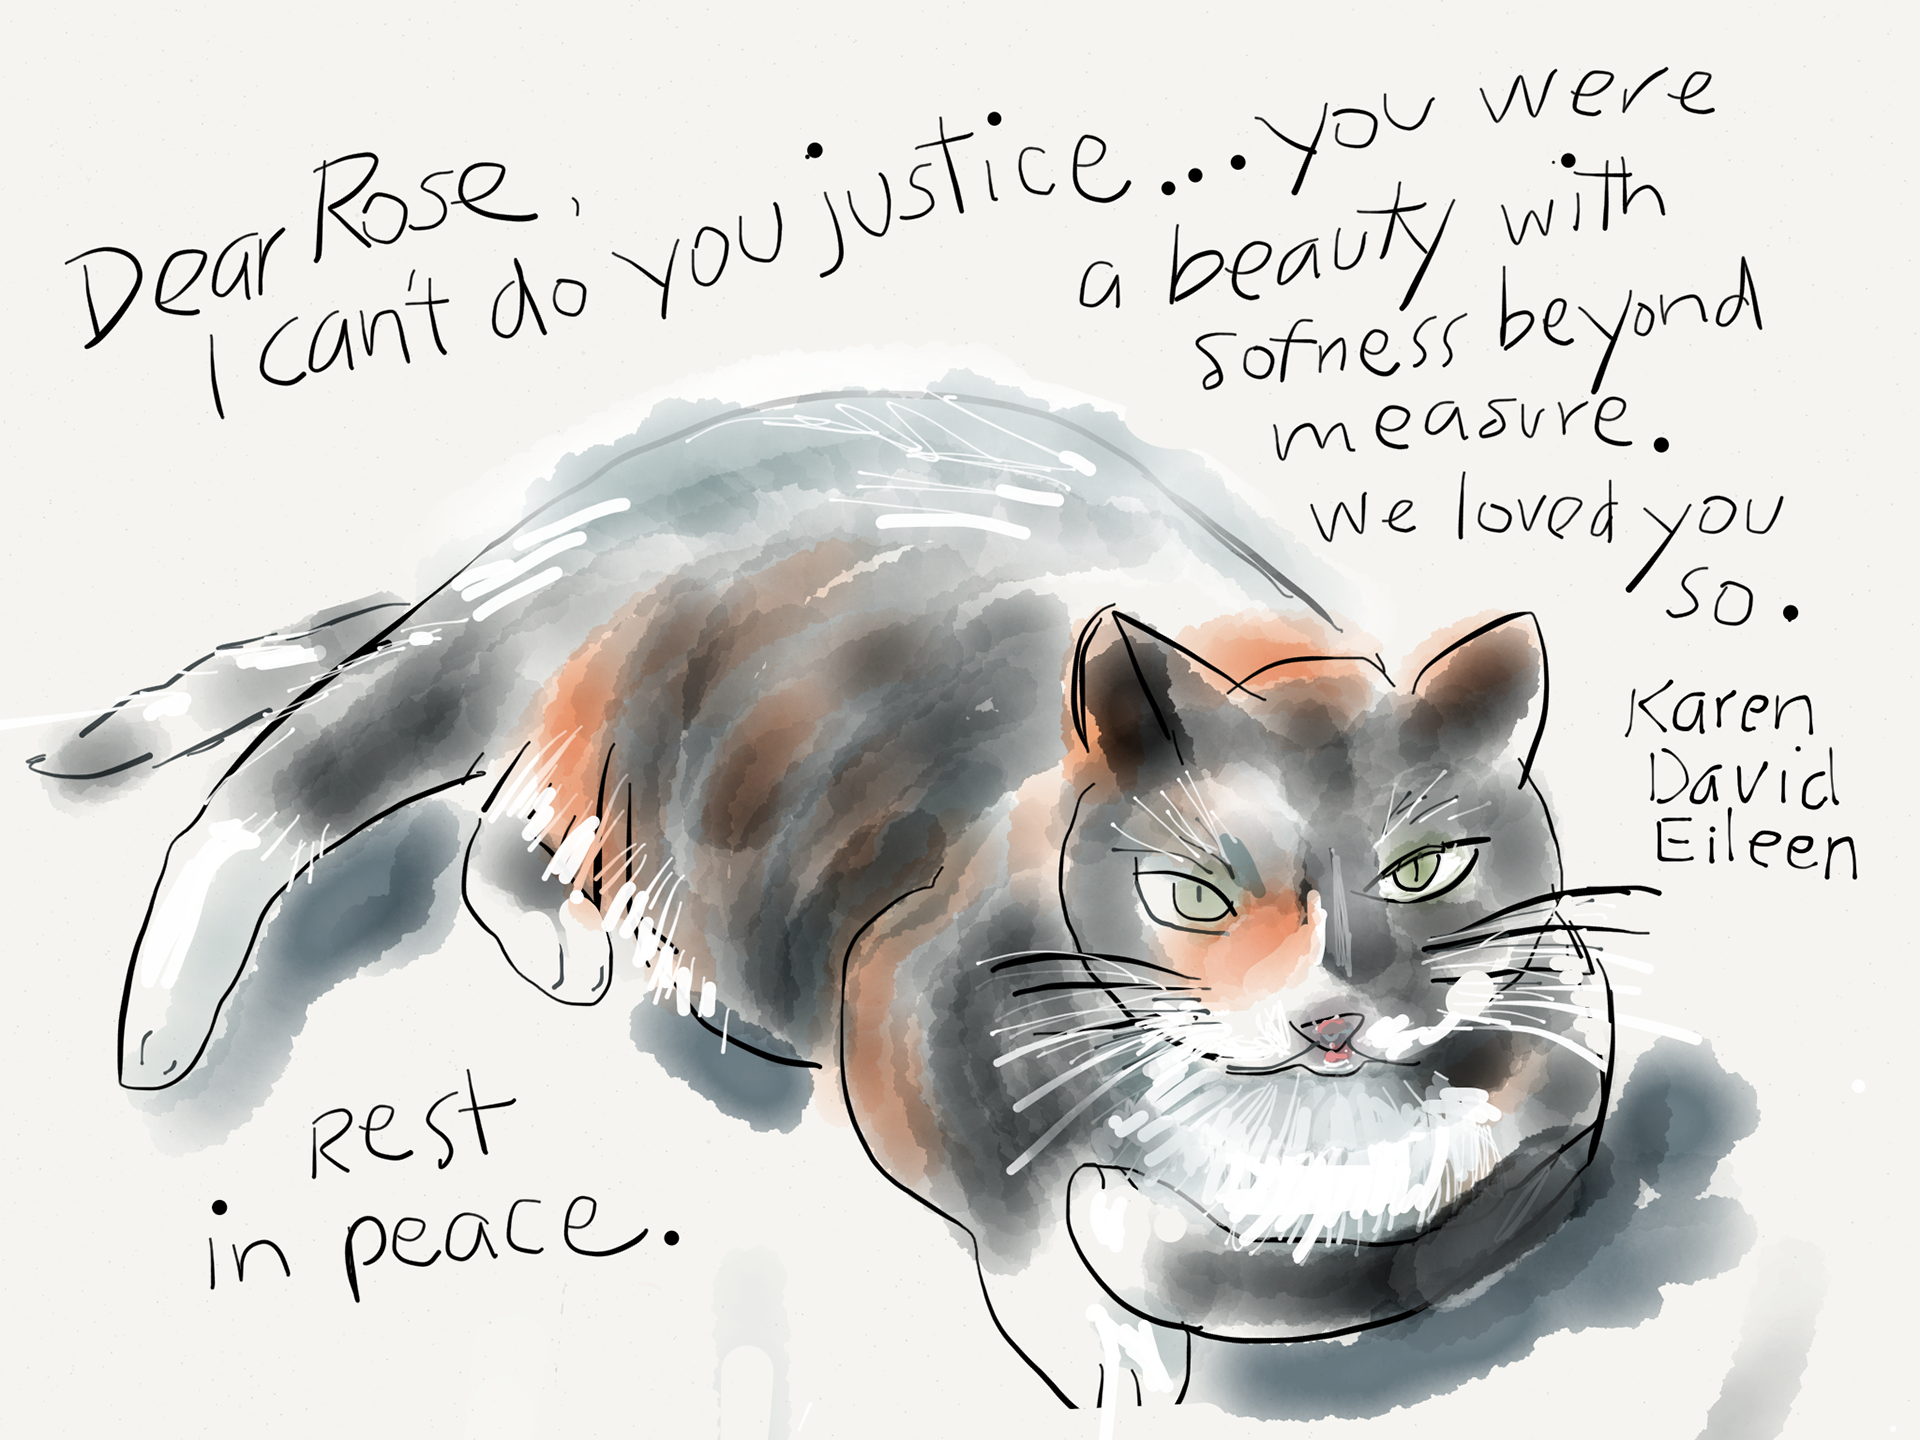 Dear Rose,
I can't do you justice... you were
a beauty with
sofness beyond
measure.
we loved you
so.
Karen
David
Eileen
Rest
in peace.